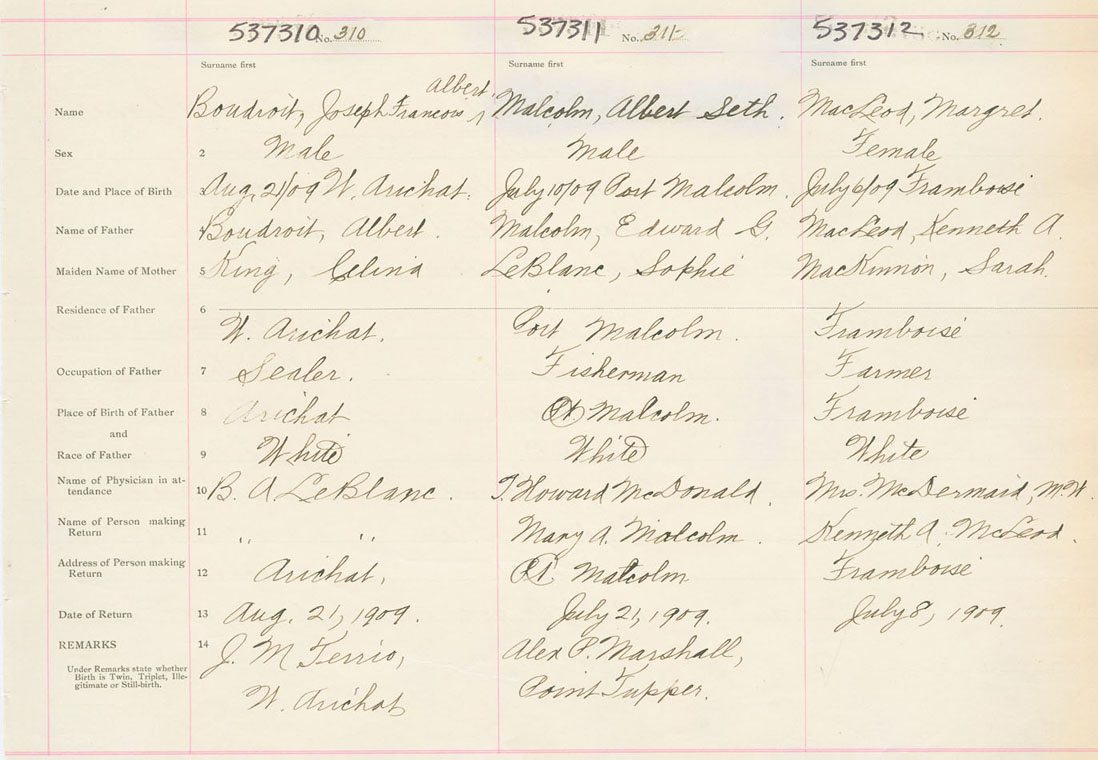 537310 No. 310 537311 No. 311 537312 No. 312
Surname first Surname first Surname first
Albert
Name Boudroit, Joseph Francois Malcolm, Albert Seth. MacLeod, Margret.
Sex 2 Male Male Female
Date and Place of Birth 3 Aug, 21/09 W. Arichat. July 10/09 Port Malcolm. July 6/09 Framboise
Name of Father 4 Boudroit, Albert. Malcolm, Edward G. MacLeod, Kenneth A.
Maiden Name of Mother 5 King, Celina LeBlanc, Sophie MacKinnon, Sarah.
Residence of Father 6
W. Arichat. Port Malcolm. Framboise
Occupation of Father 7 Sealer. Fisherman Farmer
Place of Birth of Father 8 Arichat Pt Malcolm. Framboise
and
Race of Father 9 White White White
Name of Physician in at-
tendance 10 B. A LeBlanc. J. Howard McDonald. Mrs. McDermaid, M.W.
Name of Person making
Return 11 " " Mary A. Malcolm. Kenneth A. McLeod.
Address of Person making
Return 12 Arichat, Pt. Malcolm Framboise
Date of Return 13 Aug. 21, 1909. July 21, 1909. July 8, 1909.
REMARKS 14 J. M Terrio, Alex P. Marshall,
Under Remarks state whether
Birth is Twin, Triplet, Ille-
gitimate or Still-birth.
W. Arichat Point Tupper.